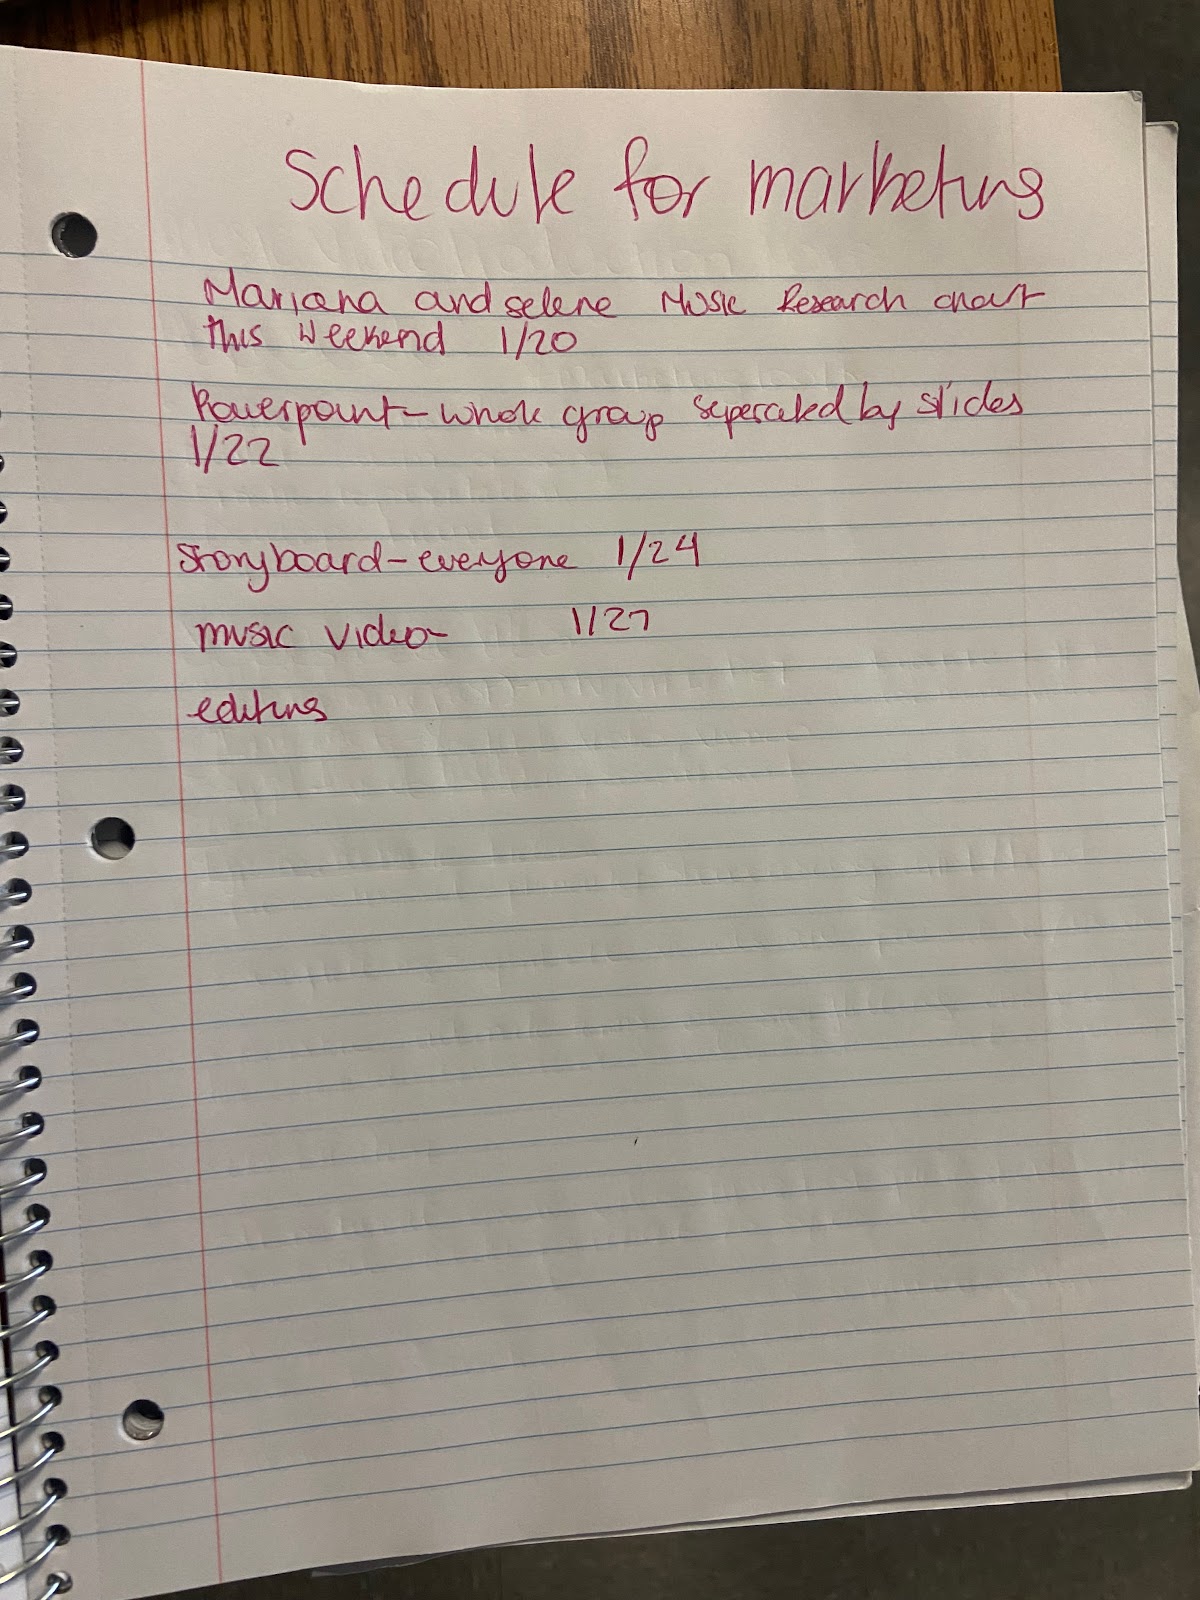 Schedule for marketing
Mariana and selene Music Research chart
this weekend 1/20
Powerpoint - whole group seperated by slides
1/22
Storyboard - everyone 1/24
music video - 1/27
editing